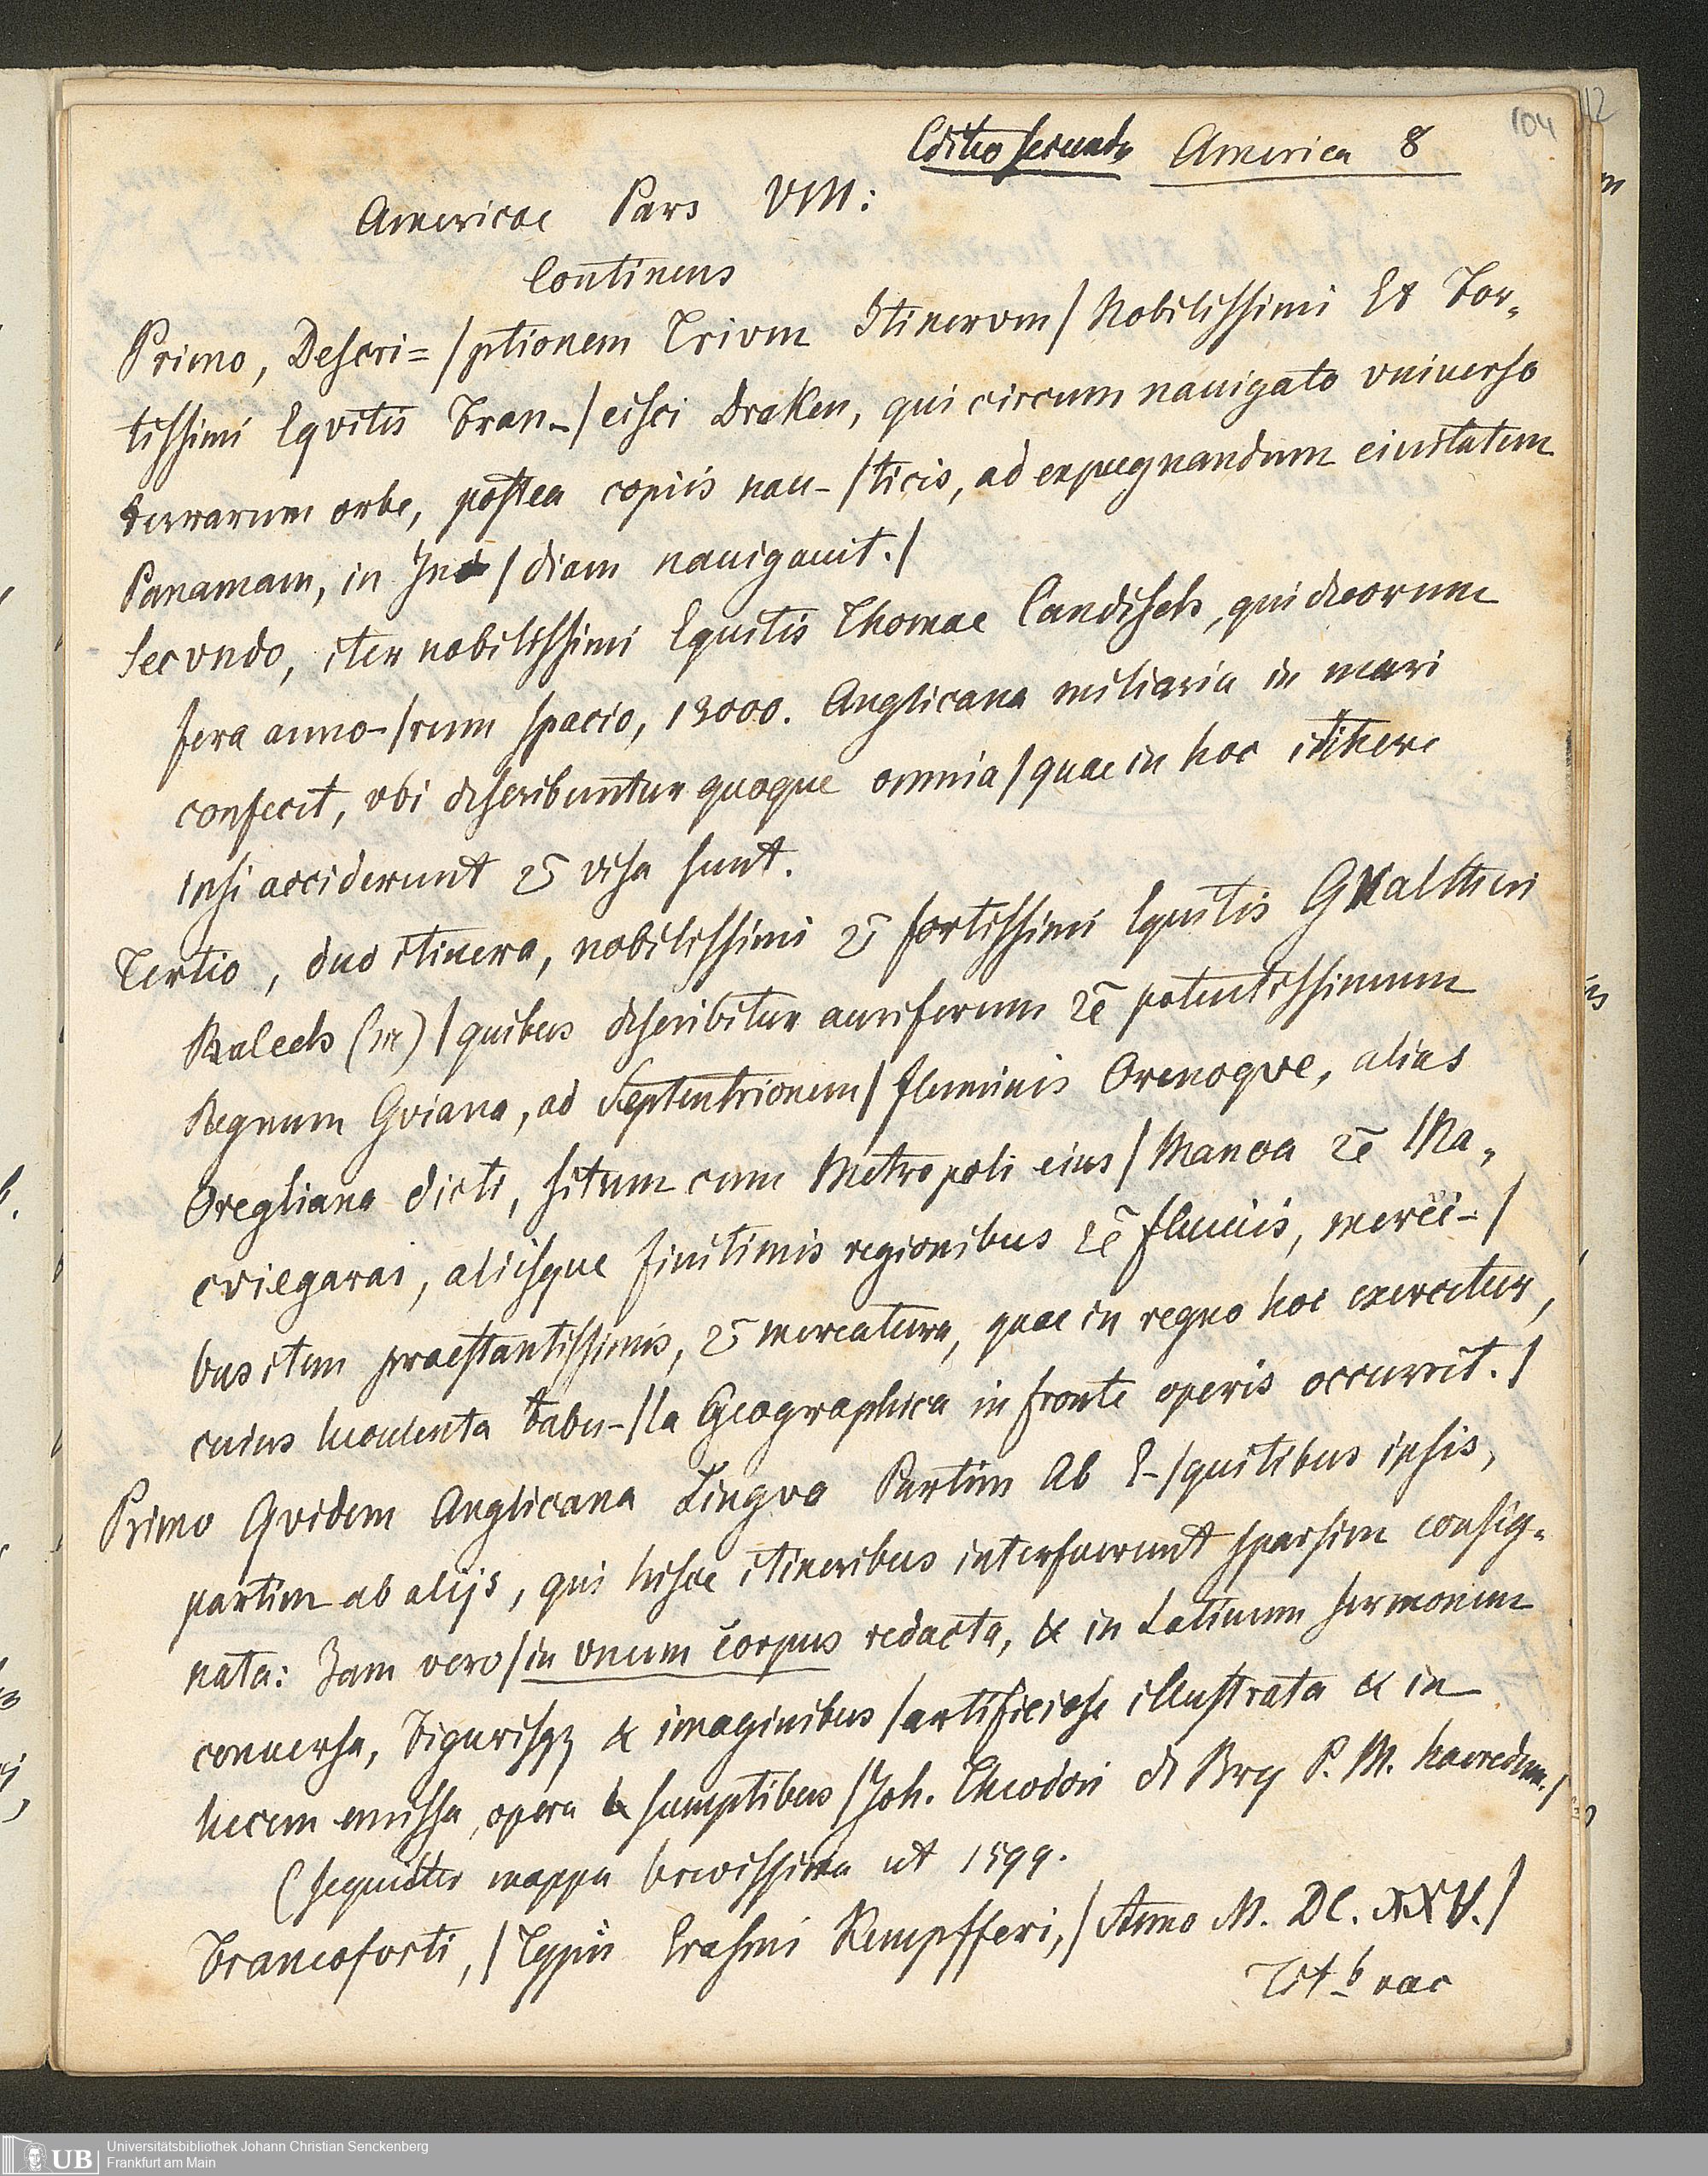 104
112
Editio secunda America 8
Americae Pars VIII:
Continens
Primo, Descri=/ptionem Trivm Itinervm/Nobilissimi Et For-
tissimi Eqvitis Fran-/cisci Draken, qui circumnauigato vniuerso
terrarum orbe, postea copiis nau-/ticis, ad expugnandum ciuitatem
Panamam, in In/diam nauigauit./
Secvndo, iter nobilissimi Equitis Thomae Candisch, qui duorum
fera anno-/rum spacio, 13000. Anglicana miliaria in mari
confecit, vbi describuntur quoque omnia/quae in hoc itinere
ipsi acciderunt & visa sunt.
Tertio, duo itinera, nobilissimi & fortissimi Equitis Gualtheri
Ralech (sic)/quibus describitur auriferum & potentissimum
Regnum Gviana, ad Septentrionem/fluminis Orenoqve, alias
Oregliana dicti, situm cum Metropoli eius/Manoa & Ma-
cviegarai, aliisque finitimis regionibus & fluuiis, merci-/
bus item praestantissimis, & mercatura, quae in regno hoc exercetur,
cuius luculenta tabu-/la Geographica in fronte operis occurrit./
Primo Qvidem Anglicana Lingva Partim Ab E-/quitibus ipsis,
partim ab alijs, qui hisce itineribus interfuerunt sparsim consig-
nata: Iam vero/in vnum corpus redacta, & in Latinum sermonem
conuersa, Figurisqz & imaginibus/artificiose illustrata & in
lucem emissa, opera & sumptibus/Joh. Theodori de Bry P. M. haeredum./
(sequitur mappa brevissima ut 1599.
Francoforti,/Typis Erasmi Kempfferi,/Anno M. DC. XXV./
Tit b vac
UB Universitätsbibliothek Johann Christian Senckenberg
Frankfurt am Main